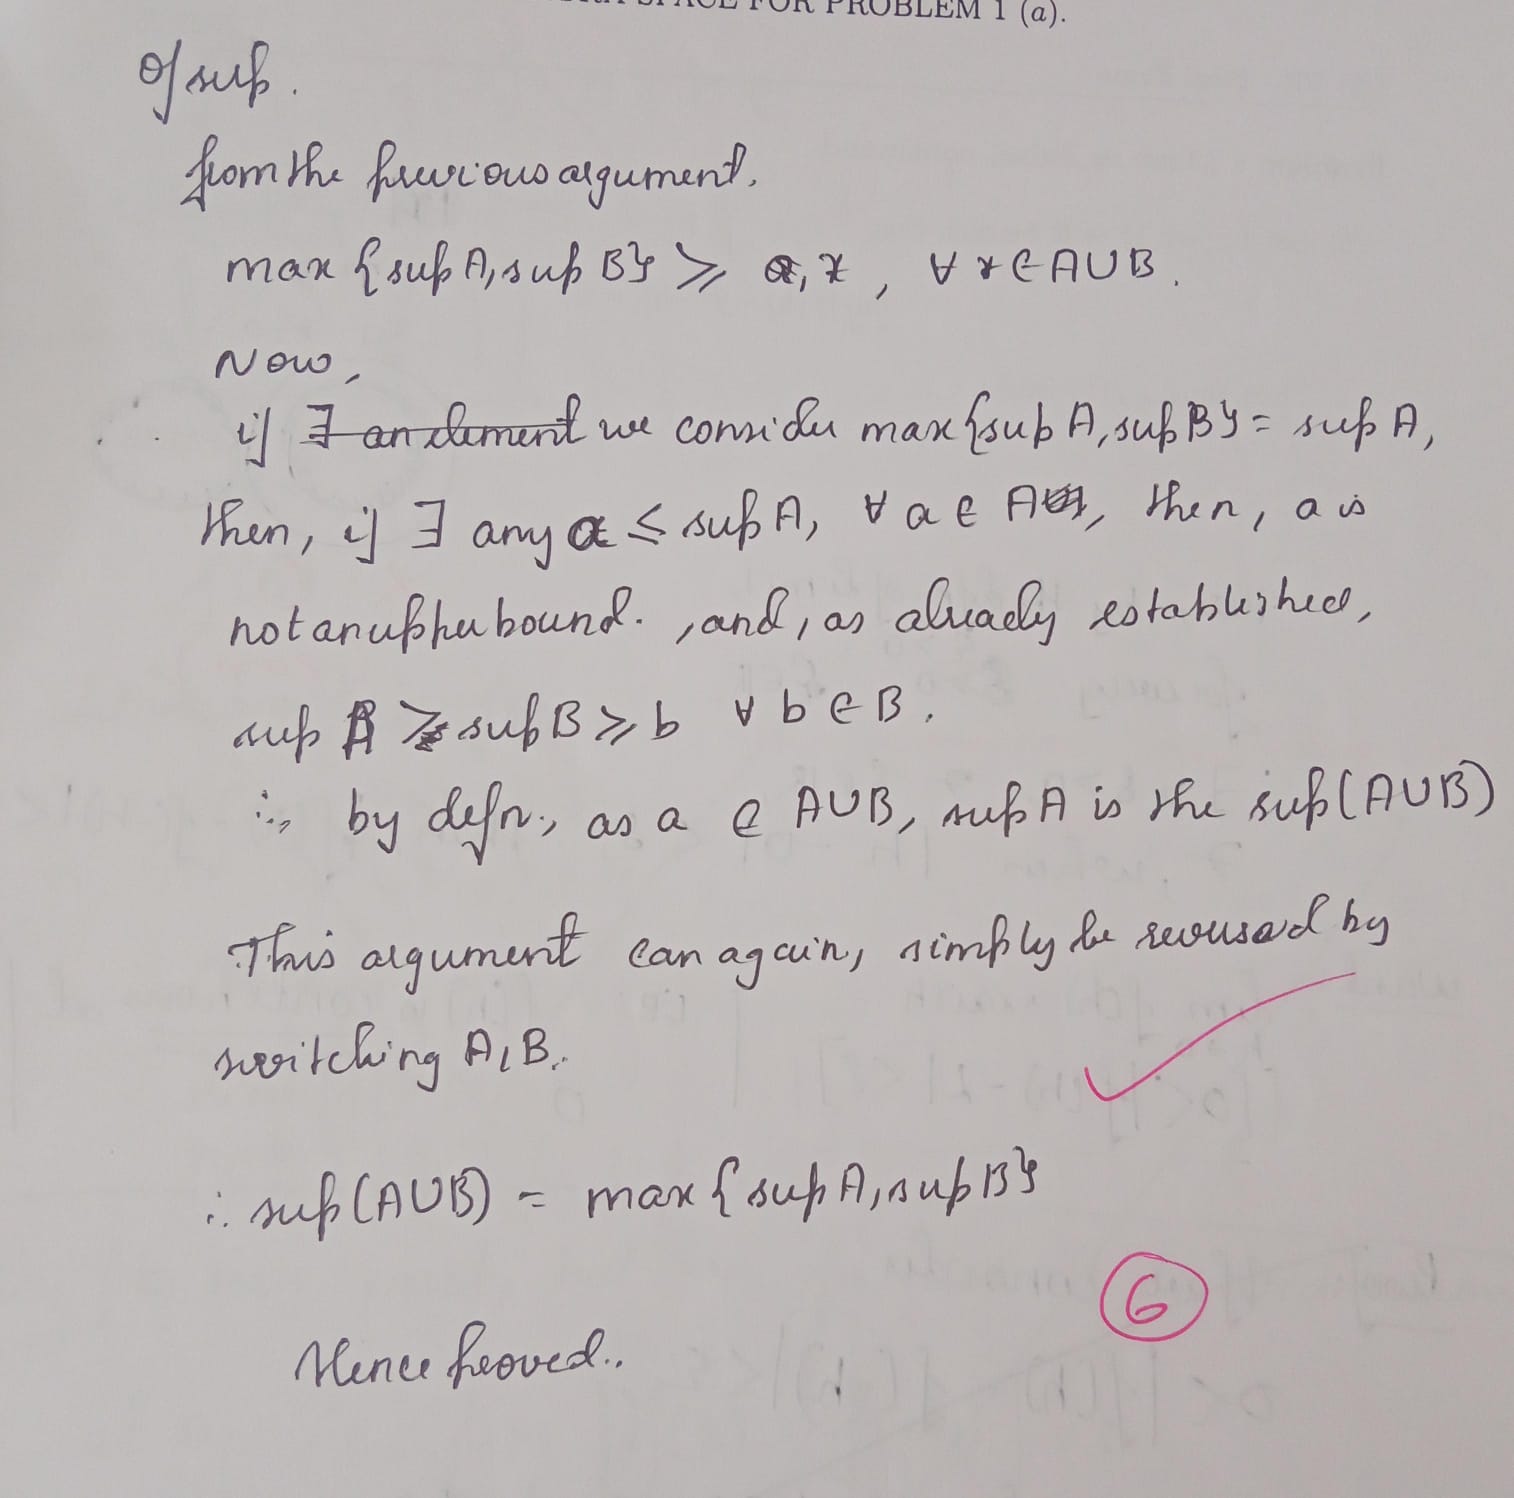 SPACE FOR PROBLEM 1 (a).
of sup.
from the previous argument.
max {sup A, sup B} ⩾ x, ∀ x ∈ A∪B.
Now,
if ∃ an element we consider max {sup A, sup B} = sup A,
then, if ∃ any α ≤ sup A, ∀ a ∈ A, then, a is
not an upper bound. , and, as already established,
sup A ⩾ sup B ⩾ b ∀ b ∈ B.
∴, by defn., as a ∈ A∪B, sup A is the sup(A∪B)
This argument can again, simply be reversed by
switching A, B.
∴ sup(A∪B) = max {sup A, sup B}
6
Hence proved..